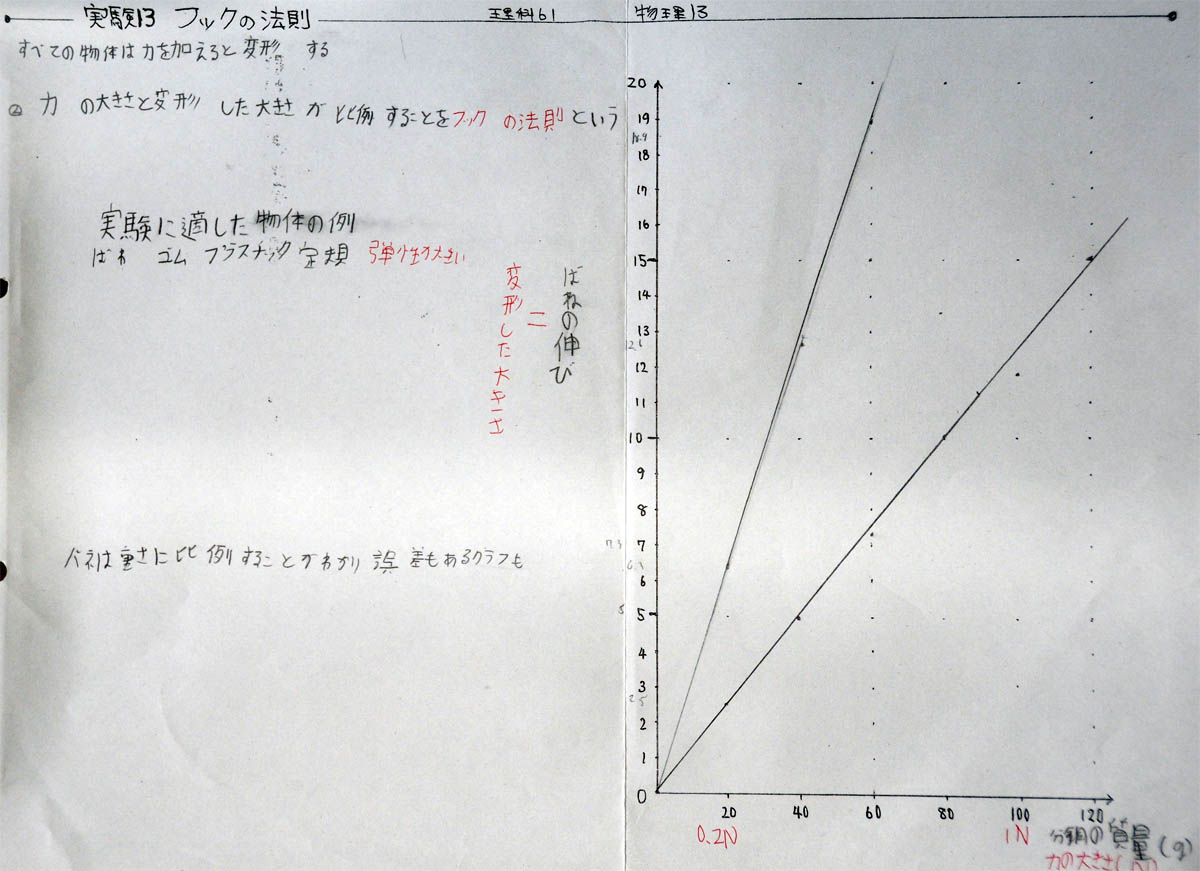 実験13 フックの法則
理科61
物理13
すべての物体は力を加えると変形 する
② 力 の大きさと変形 した大きさ が 比例 することをフック の法則 という
実験に適した物体の例
ばね ゴム プラスチック 定規 弾性が大きい
ばねの伸び
=
変形した大きさ
バネは重さに比例することがわかり 誤差もあるグラフも
20
19
18.9
18
17
16
15
14
13
12.6
12
11
10
9
8
7.3
7
6.3
6
5
5
4
3
2.5
2
1
0
20 40 60 80 100 120
0.2N 1N
分銅の質量(g)
力の大きさ(N)